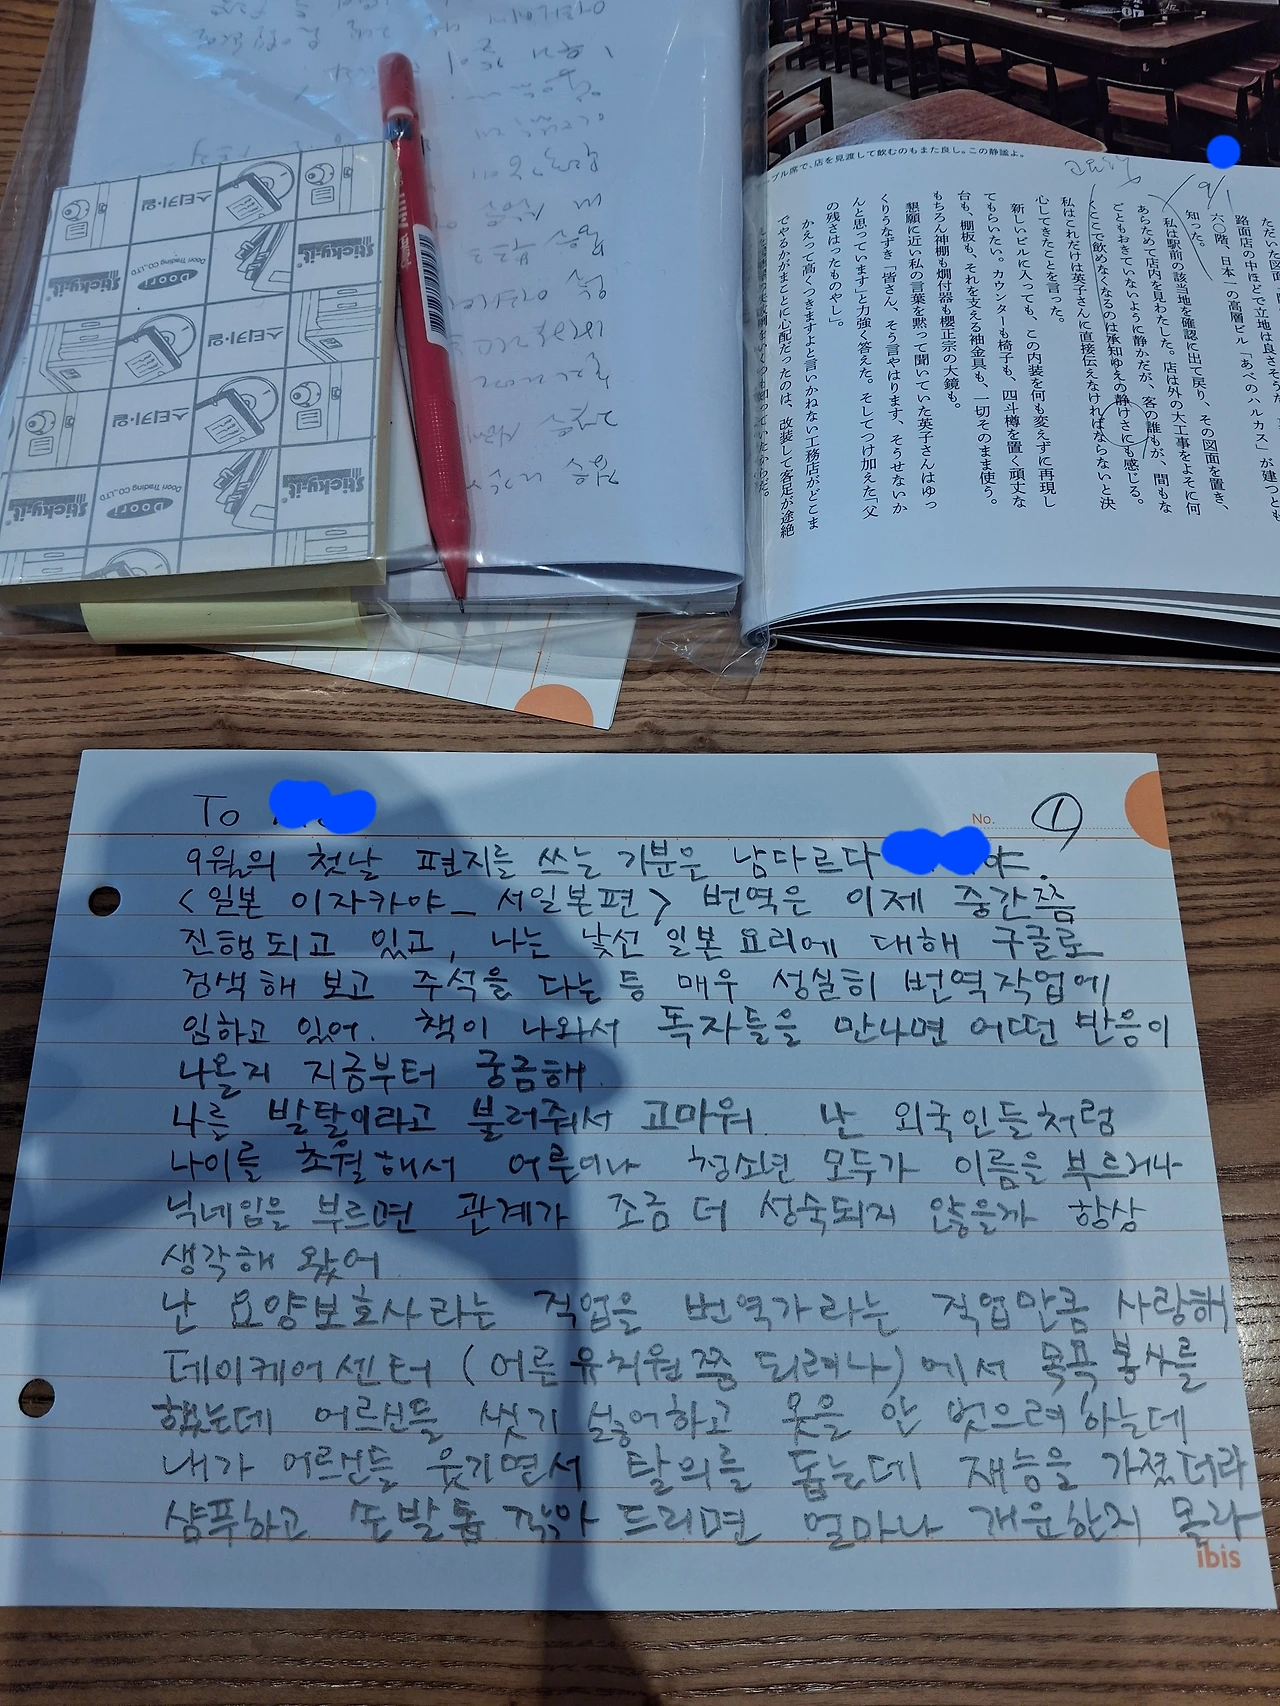 ーブル席で、店を見渡して飲むのもまた良し。この静謐よ。
路面店の中ほどで立地は良さそうだ
六〇階、日本一の高層ビル「あべのハルカス」が建つとも
知った。
私は駅前の該当地を確認に出て戻り、その図面を置き、
あらためて店内を見わたした。店は外の大工事をよそに何
ごともおきていないように静かだが、客の誰もが、間もな
くここで飲めなくなるのは承知ゆえの静けさにも感じる。
私はこれだけは英子さんに直接伝えなければならないと決
心してきたことを言った。
新しいビルに入っても、この内装を何も変えずに再現し
てもらいたい。カウンターも椅子も、四斗樽を置く頑丈な
台も、棚板も、それを支える袖金具も、一切そのまま使う。
もちろん神棚も燗付器も櫻正宗の大鏡も。
懇願に近い私の言葉を黙って聞いていた英子さんはゆっ
くりうなずき「皆さん、そう言やはります、そうせないか
んと思っています」と力強く答えた。そしてつけ加えた「父
の残さはったものやし」。
かえって高くつきますよと言いかねない工務店がどこま
でやるかがまことに心配だったのは、改装して客足が途絶
스티카·잍
Sticky-it
Doori
Doori Trading CO.,LTD
To
No. ①
9월의 첫날 편지를 쓰는 기분은 남다르다 야.
<일본 이자카야_ 서일본편> 번역은 이제 중간쯤
진행되고 있고, 나는 낯선 일본요리에 대해 구글로
검색해 보고 주석을 다는 등 매우 성실히 번역작업에
임하고 있어. 책이 나와서 독자들을 만나면 어떤 반응이
나올지 지금부터 궁금해.
나를 발탈이라고 불러줘서 고마워. 난 외국인들처럼
나이를 초월해서 어른이나 청소년 모두가 이름을 부르거나
닉네임을 부르면 관계가 조금 더 성숙되지 않을까 항상
생각해 왔어.
난 요양보호사라는 직업을 번역가라는 직업만큼 사랑해
데이케어센터 (어른유치원쯤 되려나)에서 목욕봉사를
했는데 어르신들 씻기 싫어하고 옷을 안 벗으려 하는데
내가 어르신들 웃기면서 탈의를 돕는데 재능을 가졌더라
샴푸하고 손발톱 깎아 드리면 얼마나 개운한지 몰라
ibis